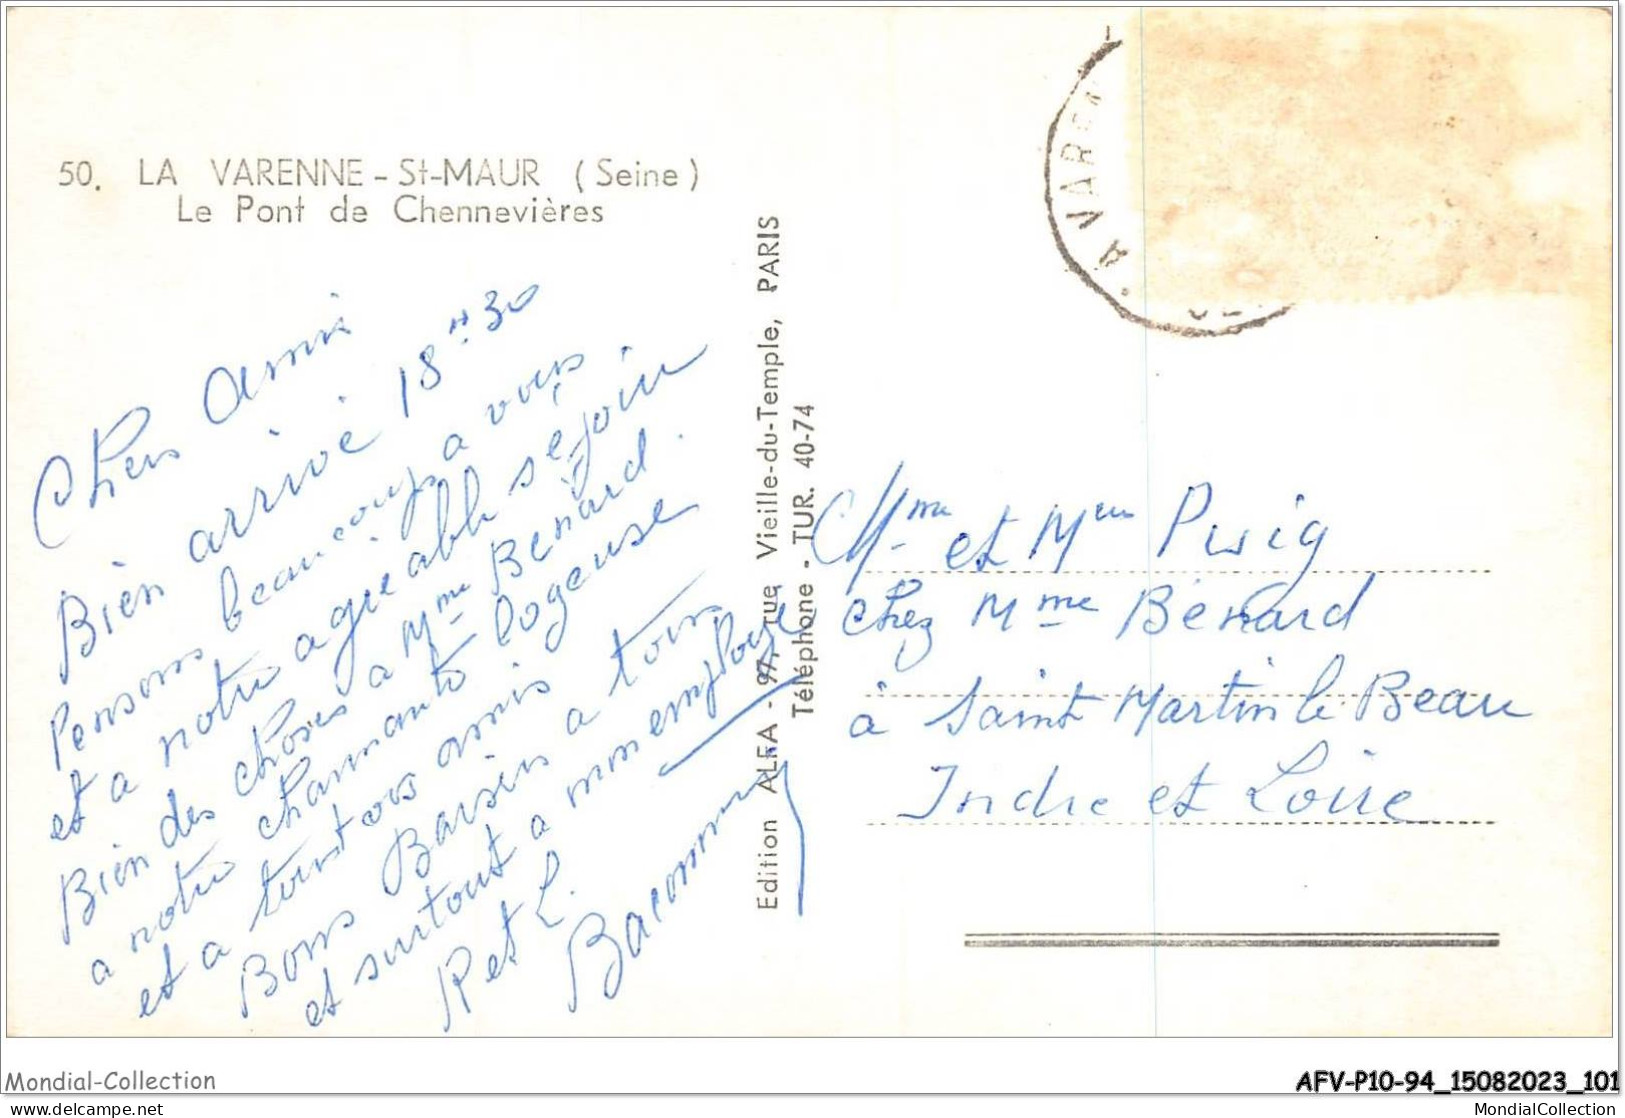 50. LA VARENNE - St-MAUR (Seine)
Le Pont de Chennevières
Chers Amis
Bien arrivé 18 H 30
Pensons beaucoup a vous
et a notre agreable séjour
Bien des choses a Mme Benard.
a notre charmante logeuse
et a tous tous amis
Bons Baisers a tous
et surtout a mon employé
R et L.
Edition ALFA - 97, rue Vieille-du-Temple, PARIS
Téléphone - TUR. 40-74
A VAREN
Mme et Mr Puig
chez Mme Bénard
à Saint Martin le Beau
Indre et Loire
Mondial-Collection
AFV-P10-94_15082023_101
delcampe.net
MondialCollection